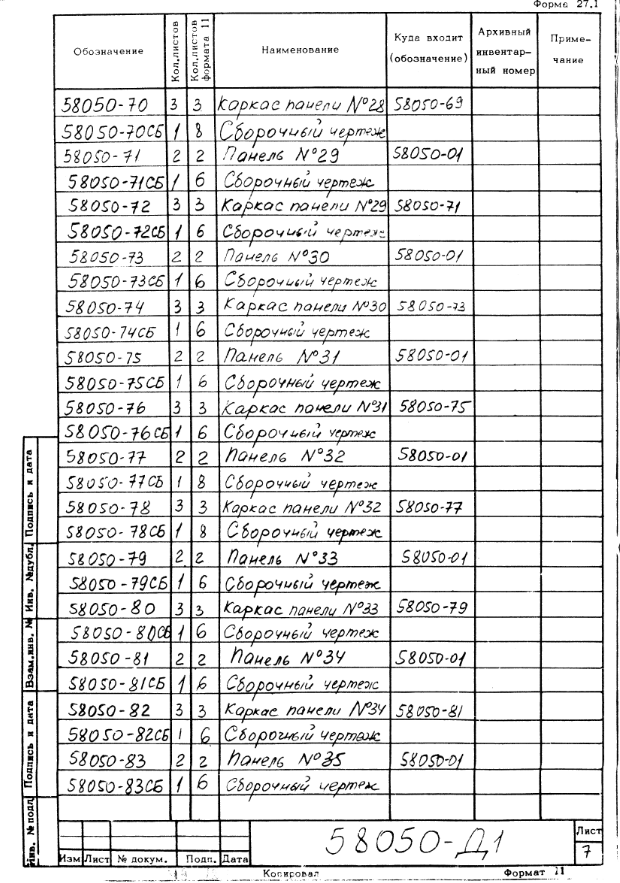 Форма 27.1
Обозначение Кол.листов Кол.листов формата 11 Наименование Куда входит (обозначение) Архивный инвентарный номер Примечание
58050-70 3 3 Каркас панели №28 58050-69
58050-70СБ 1 8 Сборочный чертеж
58050-71 2 2 Панель №29 58050-01
58050-71СБ 1 6 Сборочный чертеж
58050-72 3 3 Каркас панели №29 58050-71
58050-72СБ 1 6 Сборочный чертеж
58050-73 2 2 Панель №30 58050-01
58050-73СБ 1 6 Сборочный чертеж
58050-74 3 3 Каркас панели №30 58050-73
58050-74СБ 1 6 Сборочный чертеж
58050-75 2 2 Панель №31 58050-01
58050-75СБ 1 6 Сборочный чертеж
58050-76 3 3 Каркас панели №31 58050-75
58050-76СБ 1 6 Сборочный чертеж
58050-77 2 2 Панель №32 58050-01
58050-77СБ 1 8 Сборочный чертеж
58050-78 3 3 Каркас панели №32 58050-77
58050-78СБ 1 8 Сборочный чертеж
58050-79 2 2 Панель №33 58050-01
58050-79СБ 1 6 Сборочный чертеж
58050-80 3 3 Каркас панели №33 58050-79
58050-80СБ 1 6 Сборочный чертеж
58050-81 2 2 Панель №34 58050-01
58050-81СБ 1 6 Сборочный чертеж
58050-82 3 3 Каркас панели №34 58050-81
58050-82СБ 1 6 Сборочный чертеж
58050-83 2 2 Панель №35 58050-01
58050-83СБ 1 6 Сборочный чертеж
Подпись и дата
Инв. №дубл.
Взам.инв. №
Подпись и дата
Инв. №подл.
58050-Д1
Лист
7
Изм Лист № докум. Подп. Дата
Копировал Формат 11